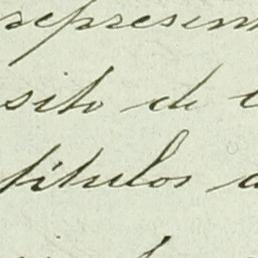 represen
sito de
títulos